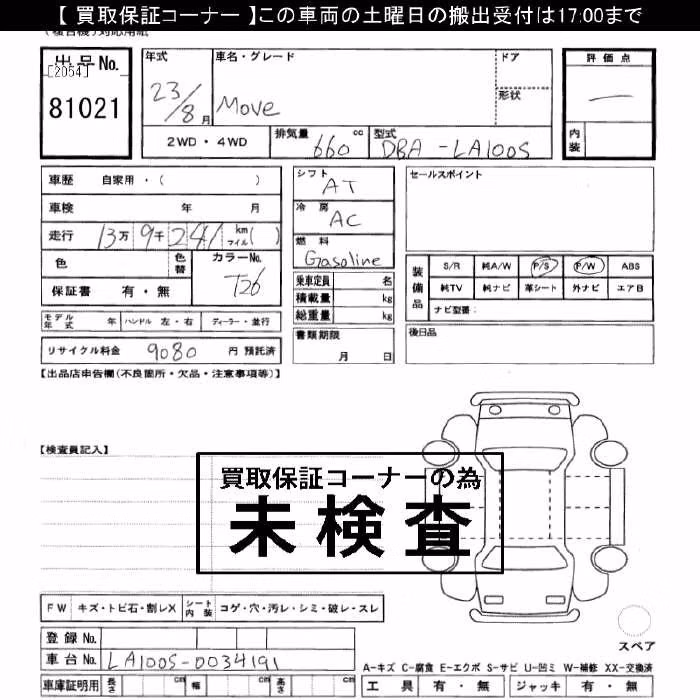 【 買取保証コーナー 】この車両の土曜日の搬出受付は17:00まで
出品No.
[2054]
81021
年式
23/8月
車名・グレード
Move
ドア
形状
評価点
―
内装
2WD・4WD
排気量 660 cc
型式 DBA-LA100S
車歴 自家用・( )
車検 年 月
走行 13万9千241 km マイル( )
色
色替
カラーNo.
T26
保証書 有・無
モデル年式 年
ハンドル 左・右
ディーラー・並行
リサイクル料金 9080 円 預託済
シフト
AT
冷房
AC
燃料
Gasoline
乗車定員 名
積載量 kg
総重量 kg
書類期限
月 日
セールスポイント
装備品
S/R 純A/W P/S P/W ABS
純TV 純ナビ 革シート 外ナビ エアB
ナビ型番:
後日品
【出品店申告欄(不良箇所・欠品・注意事項等)】
【検査員記入】
買取保証コーナーの為
未検査
FW キズ・トビ石・割レX
シート内装 コゲ・穴・汚レ・シミ・破レ・スレ
スペア
登録 No.
車台 No. LA100S-0034191
車庫証明用 長さ cm 幅 cm 高さ cm
A-キズ C-腐食 E-エクボ S-サビ U-凹ミ W-補修 XX-交換済
工具 有・無 ジャッキ 有・無